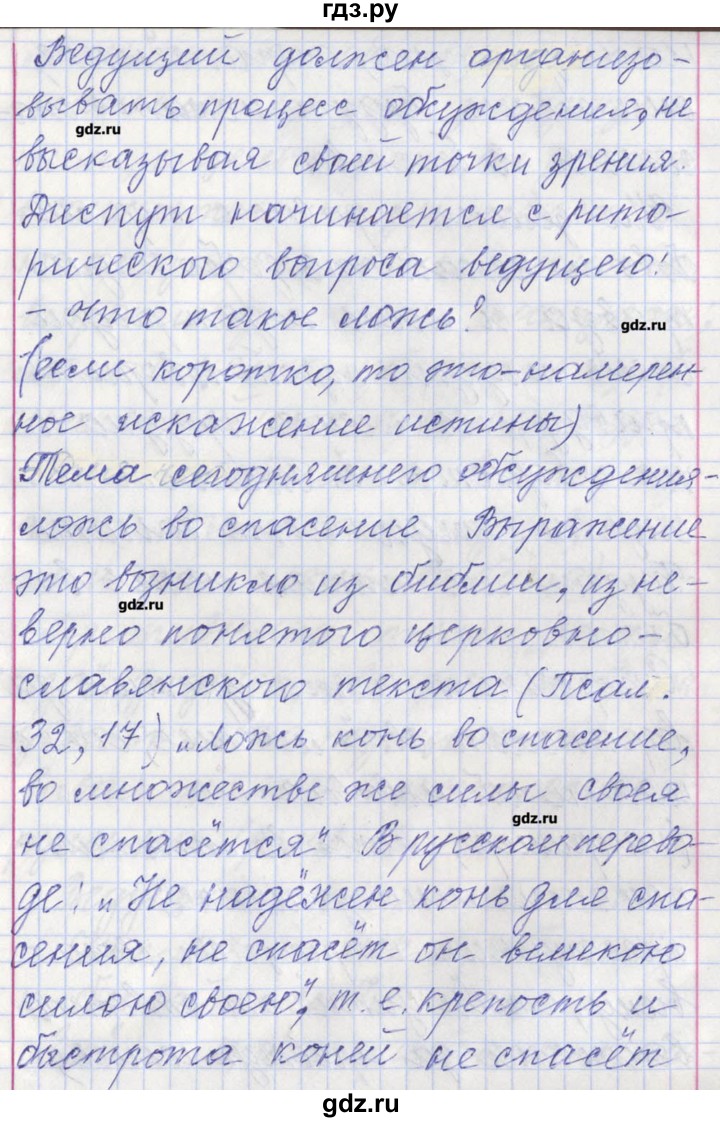 гдз.ру
Ведущий должен организо-
вывать процесс обсуждения, не
gdz.ru
высказывая своей точки зрения.
Диспут начинается с рито-
рического вопроса ведущего:
- Что такое ложь?
gdz.ru
(если коротко, то это-намерен-
ное искажение истины)
Тема сегодняшнего обсуждения-
ложь во спасение Выражение
это возникло из библии, из не-
gdz.ru
верно понятого церковно-
славянского текста (Псал.
32, 17) „Ложь конь во спасение,
во множестве же силы своея
gdz.ru
не спасётся“ В русском перево-
де: „Не надёжен конь для спа-
сения, не спасёт он великою
силою своею“, т.е. крепость и
быстрота коней не спасёт
gdz.ru